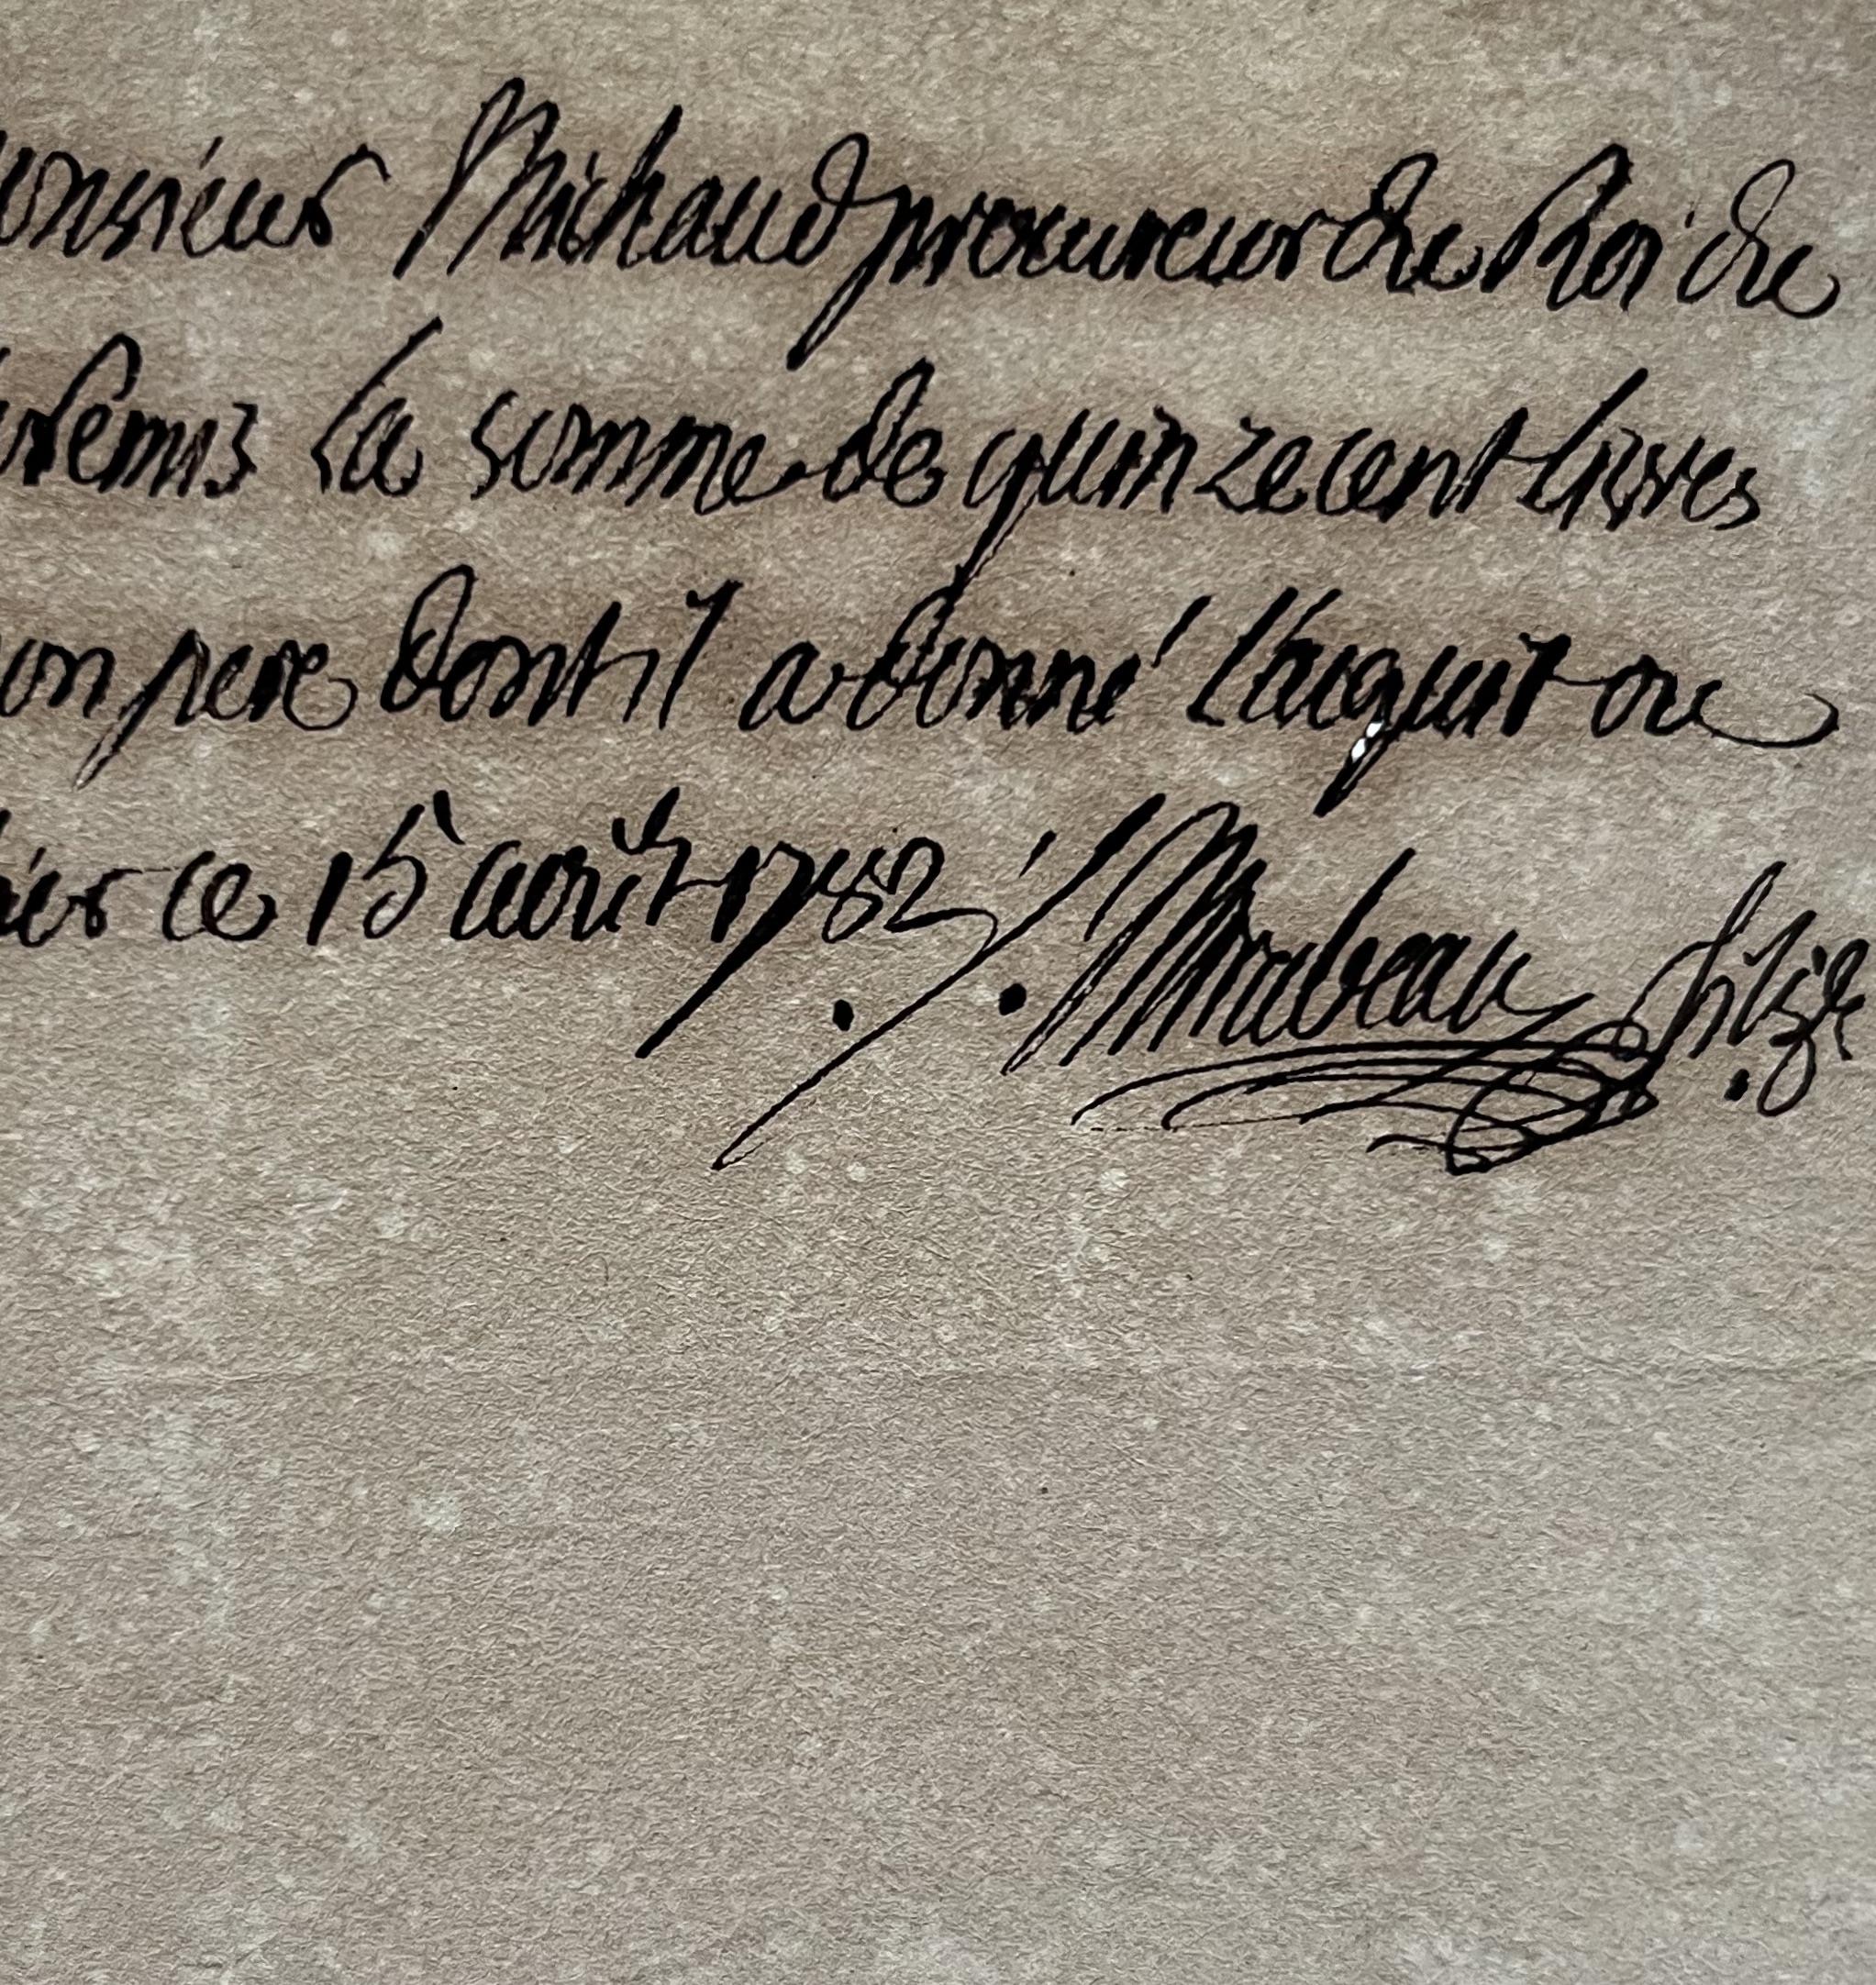 onsieur Michaud procureur du Roi de
remis la somme de quinze cent livres
on pere dont il a donné l'acquit au
ce 15 août 1782 ./. Mirabeau fils